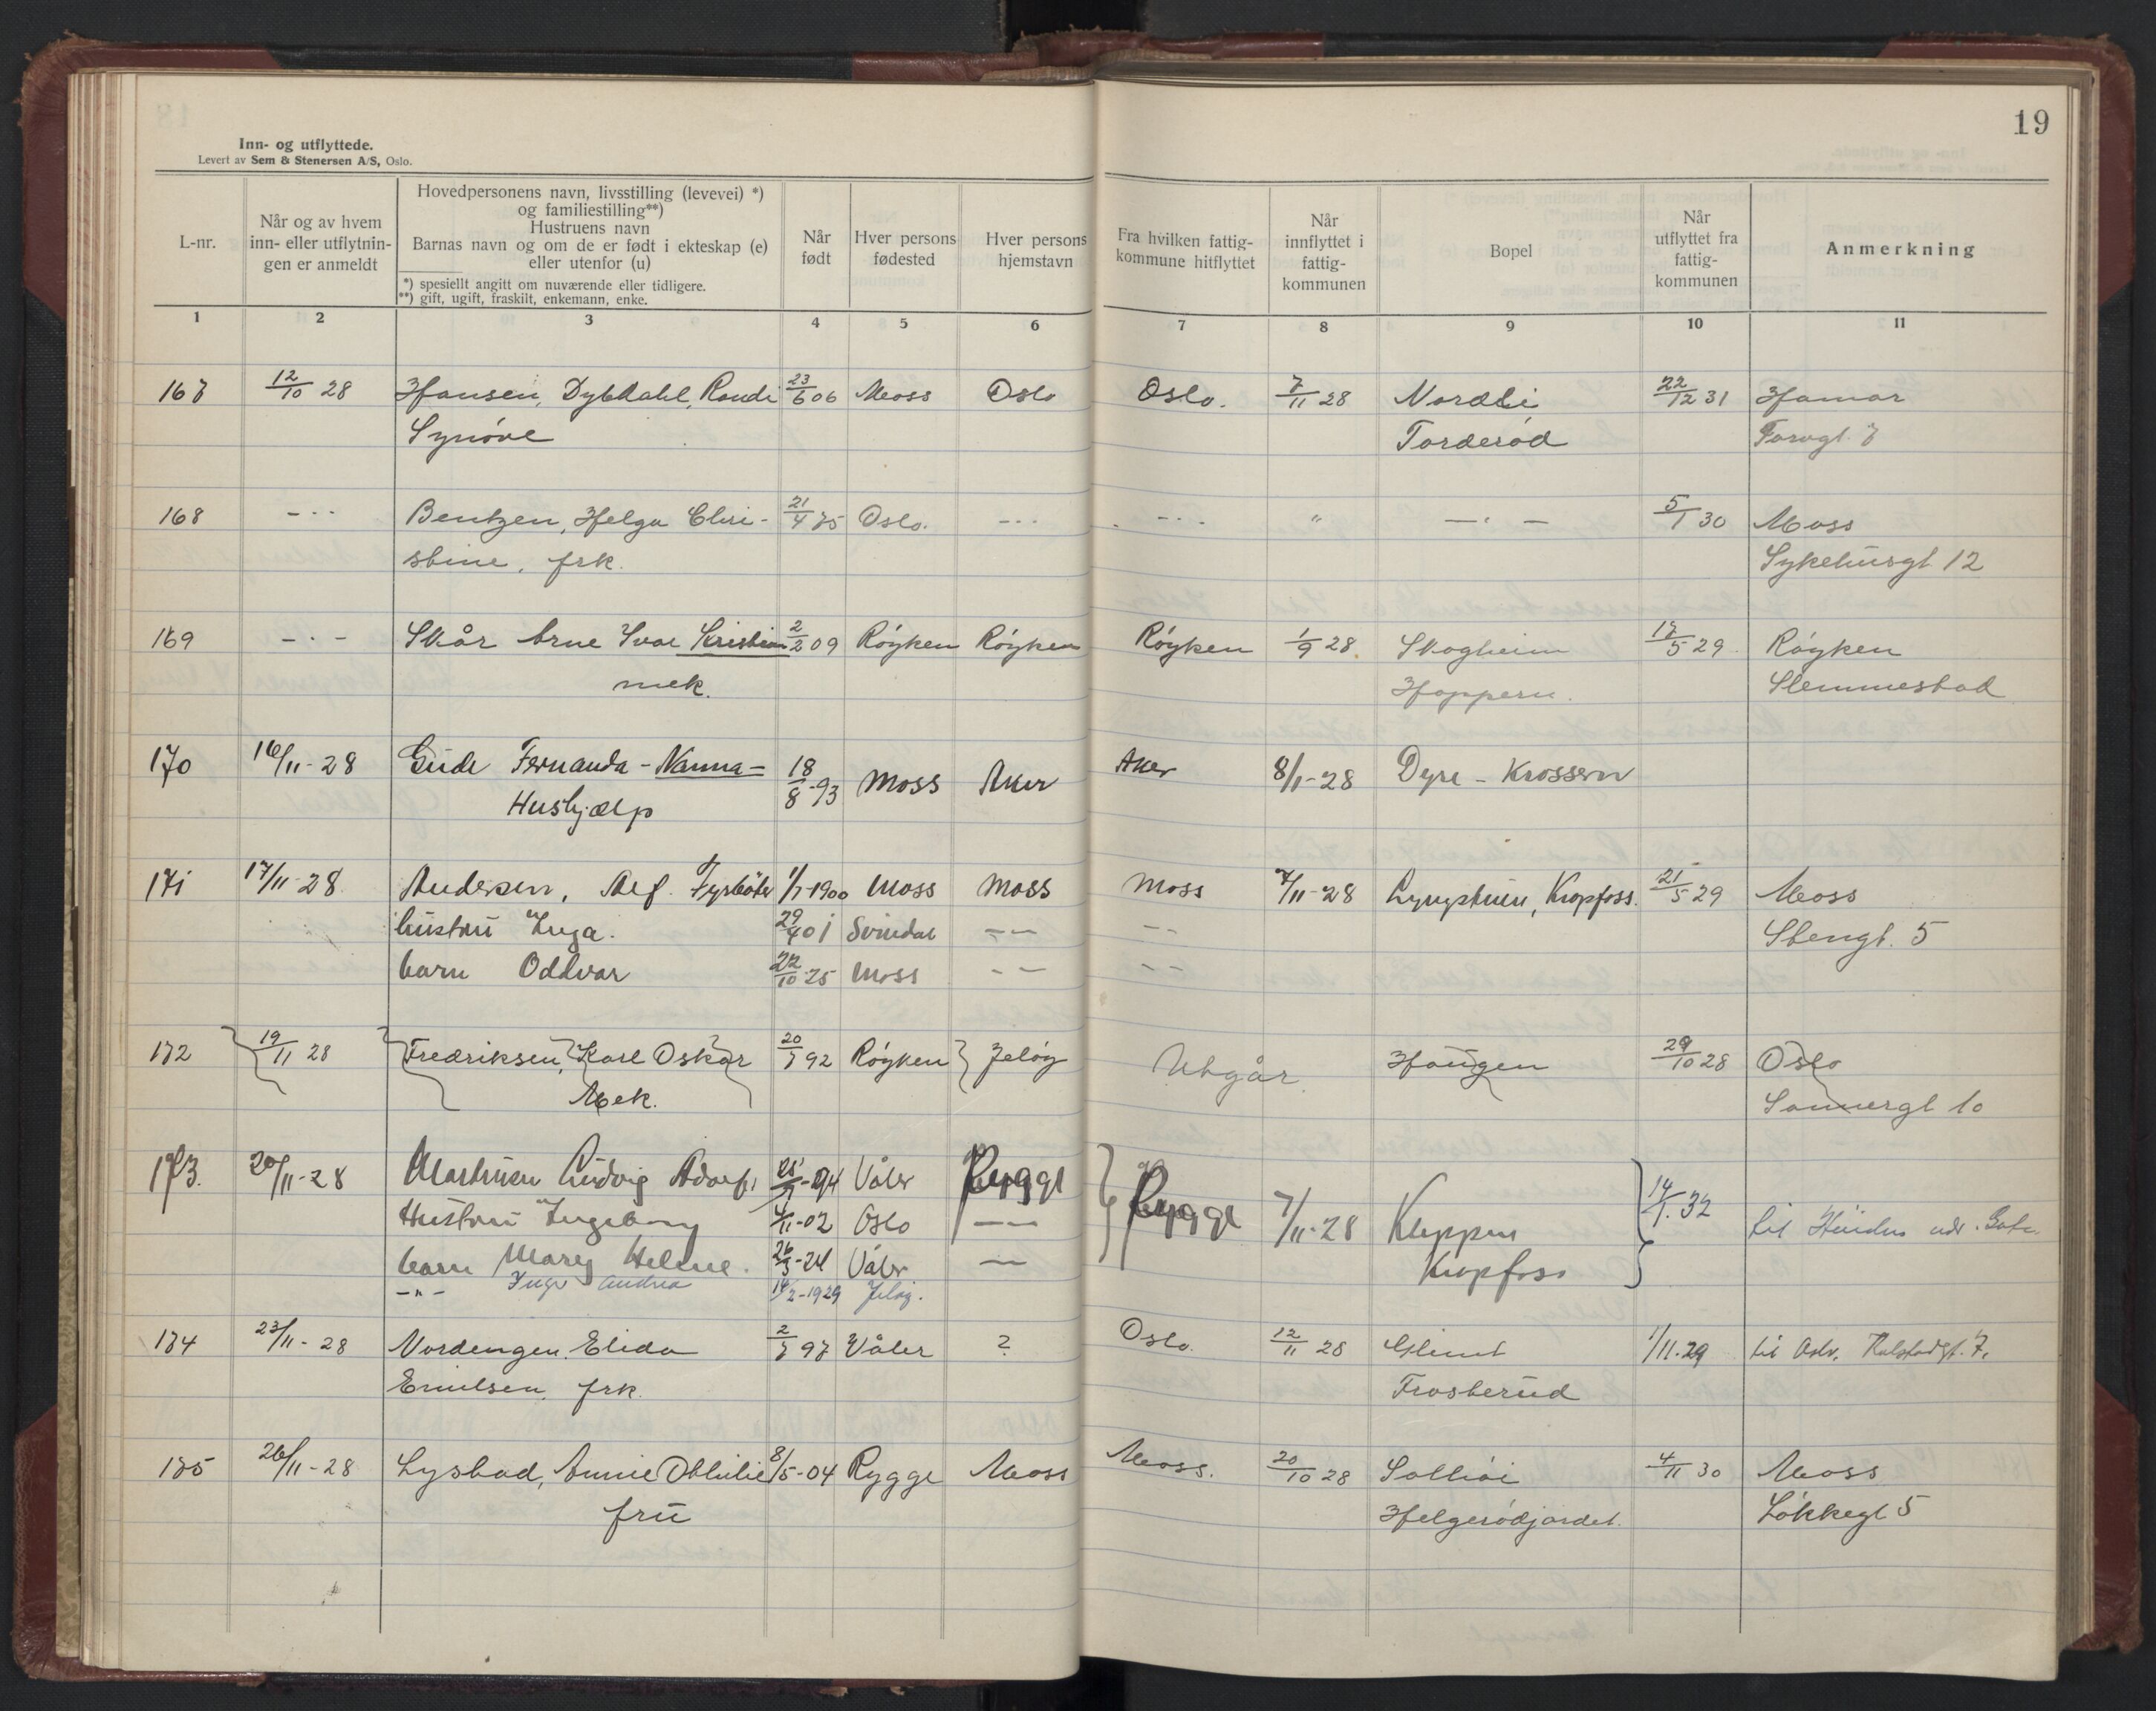 19
Inn- og utflyttede.
Levert av Sem & Stenersen A/S, Oslo.
L-nr.
Når og av hvem
inn- eller utflytnin-
gen er anmeldt
Hovedpersonens navn, livsstilling (levevei) *)
og familiestilling**)
Hustruens navn
Barnas navn og om de er født i ekteskap (e)
eller utenfor (u)
*) spesiellt angitt om nuværende eller tidligere.
**) gift, ugift, fraskilt, enkemann, enke.
Når
født
Hver persons
fødested
Hver persons
hjemstavn
Fra hvilken fattig-
kommune hitflyttet
Når
innflyttet i
fattig-
kommunen
Bopel
Når
utflyttet fra
fattig-
kommunen
Anmerkning
1 2 3 4 5 6 7 8 9 10 11
167 12/10 28 Hansen, Dybdahl, Randi 23/6 06 Moss Oslo Oslo. 7/11 28 Nordli 22/12 31 Hamar
Synøve Torderød Torvgt. 7
168 - · · Bentzen, Helga Chri- 21/4 75 Oslo. - · · - · · " - · - 5/1 30 Moss
stine, frk. Sykehusgt 12
169 - · - Skår Arne Ivar Kristian 2/2 09 Røyken Røyken Røyken 1/9 28. Skogheim 17/5 29 Røyken
mek. Hoppern. Slemmestad
170 16/11-28 Gude Fernanda - Nanna - 18/8-93 Moss Aker Aker 8/1-28 Dyre - Krossern
Hushjælp
171 17/11-28. Andersen, Alf. Fyrbøter 1/7-1900 Moss Moss Moss 7/11-28 Lyngstuen, Kropfoss. 21/5 29 Moss
hustru Inga. 29/4 01 Svindal - - - - Stengt. 5
barn Oddvar 22/10-25 Moss - - - -
172 19/11 28 Fredriksen, Karl Oskar 20/7 92 Røyken Jeløy Utgår Haugen 29/10 28 Oslo
Mek. Sannergt 10
173. 20/11-28 Martinsen Ludvig Adolf, -94 Våler Rygge Rygge 7/11-28 Kleppen 14/1. 32 til
Hustru Ingeborg 4/11-02 Oslo - - Kropfoss
barn Mary Helene. 26/3-24 Våler -
-"- Inger Andrea 14/2-1929 Jeløy.
174 23/11-28 Nordengen, Elida 2/7 97 Våler ? Oslo. 12/11 28 Glimt 1/11-29 til Oslo,
Emilsen, frk. Trosterud
175 26/11-28 Lysbad, Annie Othilie 8/5-04 Rygge Moss Moss. 20/10 28 Solhøi 4/11 30 Moss
fru Helgerødjordet. Løkkegt 5